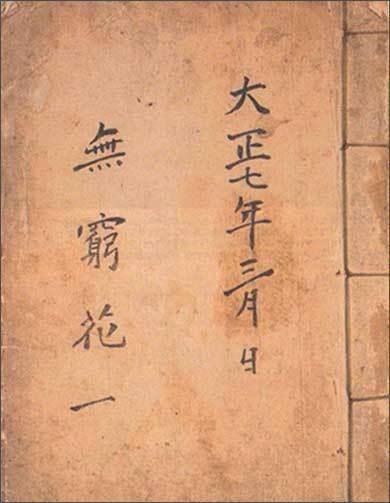 大正七年三月 日
無窮花 一